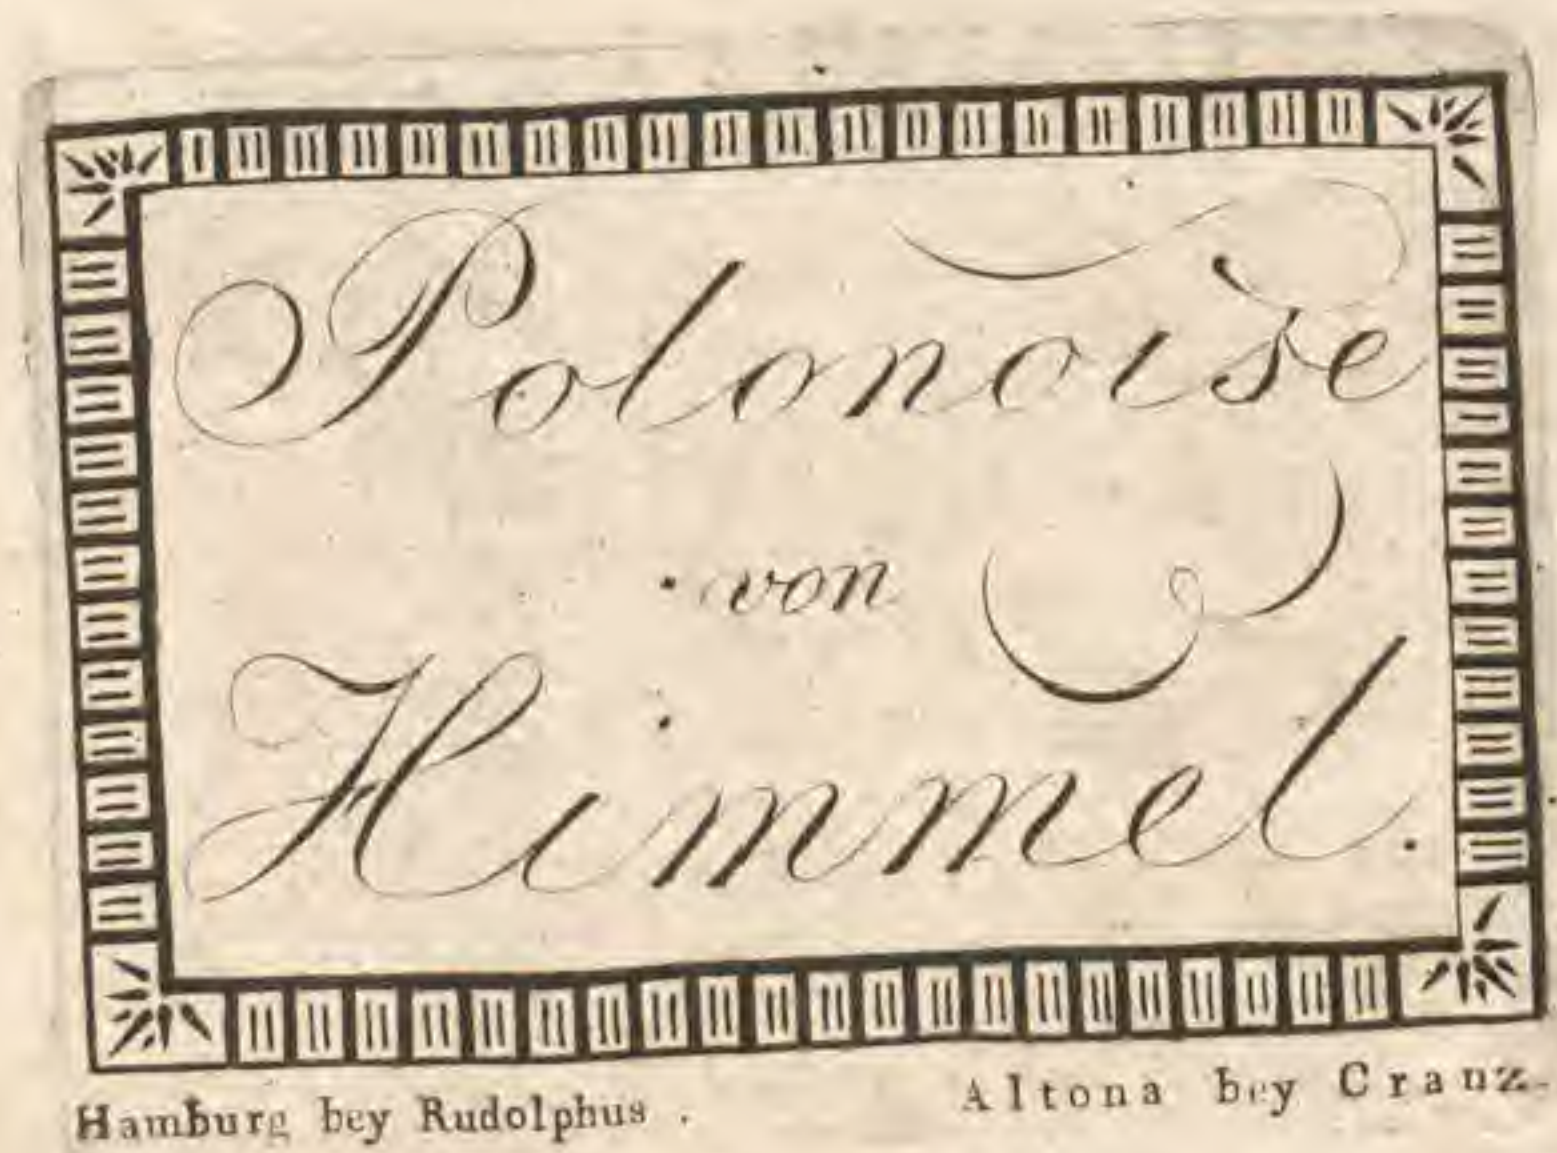 Polonoise
von
Himmel.
Hamburg bey Rudolphus. Altona bey Cranz.